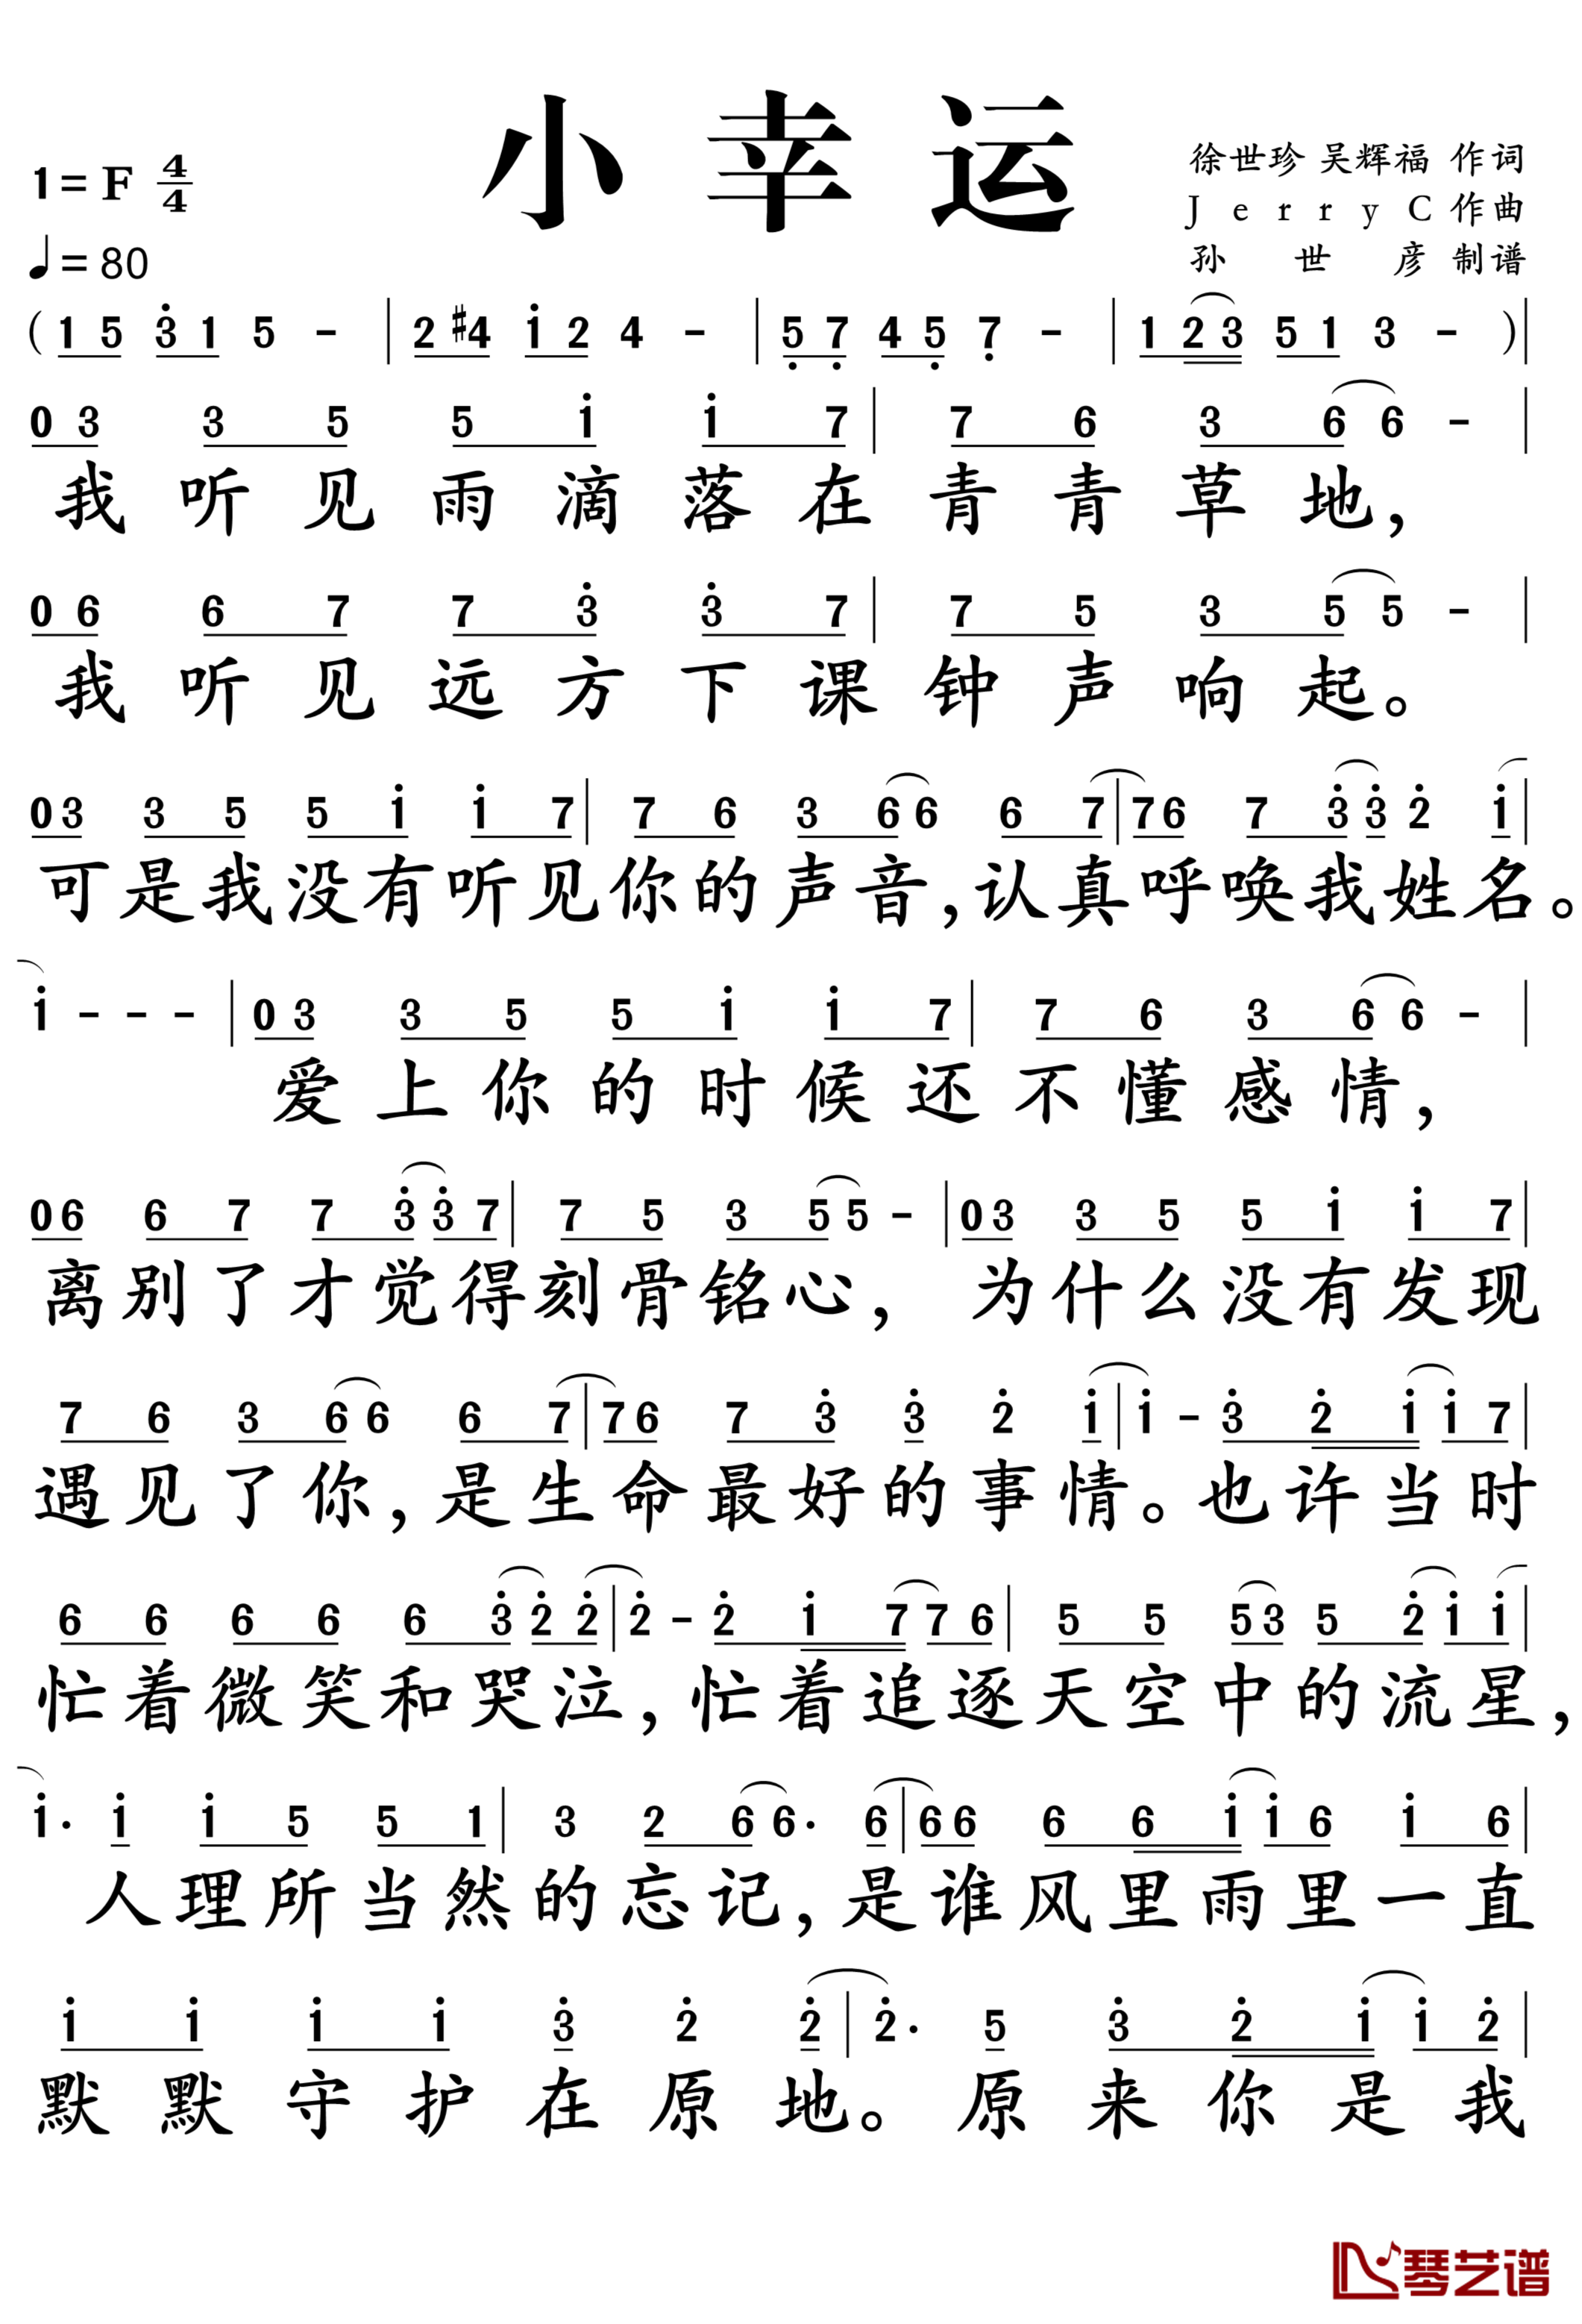 小幸运
1=F 4/4
♩=80
徐世珍 吴辉福 作词
JerryC 作曲
孙世彦 制谱
( 1 5 3̇ 1 5 - | 2 #4 1̇ 2 4 - | 5̣ 7̣ 4 5̣ 7̣ - | 1 2 3 5 1 3 - ) |
0 3 3 5 5 1̇ 1̇ 7 | 7 6 3 6 6 - |
我听见雨滴落在青青草地，
0 6 6 7 7 3̇ 3̇ 7 | 7 5 3 5 5 - |
我听见远方下课钟声响起。
0 3 3 5 5 1̇ 1̇ 7 | 7 6 3 6 6 6 7 | 7 6 7 3̇ 3̇ 2̇ 1̇ |
可是我没有听见你的声音，认真呼唤我姓名。
1̇ - - - | 0 3 3 5 5 1̇ 1̇ 7 | 7 6 3 6 6 - |
爱上你的时候还不懂感情，
0 6 6 7 7 3̇ 3̇ 7 | 7 5 3 5 5 - | 0 3 3 5 5 1̇ 1̇ 7 |
离别了才觉得刻骨铭心，为什么没有发现
7 6 3 6 6 6 7 | 7 6 7 3̇ 3̇ 2̇ 1̇ | 1̇ - 3̇ 2̇ 1̇ 1̇ 7 |
遇见了你，是生命最好的事情。也许当时
6 6 6 6 6 3̇ 2̇ 2̇ | 2̇ - 2̇ 1̇ 7 7 6 | 5 5 5 3 5 2̇ 1̇ 1̇ |
忙着微笑和哭泣，忙着追逐天空中的流星，
1̇· 1̇ 1̇ 5 5 1 | 3 2 6 6· 6 | 6 6 6 6 1̇ 1̇ 6 1̇ 6 |
人理所当然的忘记，是谁风里雨里一直
1̇ 1̇ 1̇ 1̇ 3̇ 2̇ 2̇ | 2̇· 5 3̇ 2̇ 1̇ 1̇ 2̇ |
默默守护在原地。原来你是我
琴艺谱